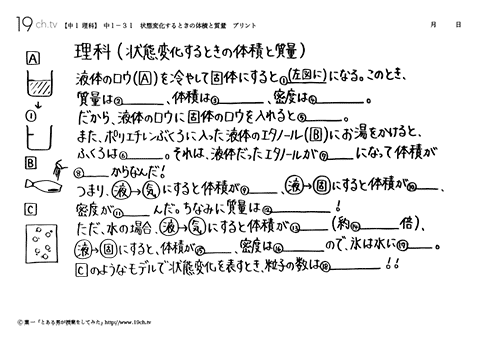 19ch.tv 【中1 理科】 中1-31 状態変化するときの体積と質量 プリント 月 日
理科(状態変化するときの体積と質量)
A
液体のロウ(A)を冷やして固体にすると①(左図に)になる。このとき、
質量は②____、体積は③____、密度は④____。
①
だから、液体のロウに固体のロウを入れると⑤____。
また、ポリエチレンぶくろに入った液体のエタノール(B)にお湯をかけると、
B
ふくろは⑥____。それは、液体だったエタノールが⑦____になって体積が
⑧____からなんだ!
つまり、液→気にすると体積が⑨____、液→固にすると体積が⑩____、
C
密度が⑪____んだ。ちなみに質量は⑫____!
ただ、水の場合、液→気にすると体積が⑬____(約⑭____倍)、
液→固にすると、体積が⑮____、密度は⑯____ので、氷は水に⑰____。
Cのようなモデルで状態変化を表すとき、粒子の数は⑱____!!
© 葉一「とある男が授業をしてみた」http://www.19ch.tv